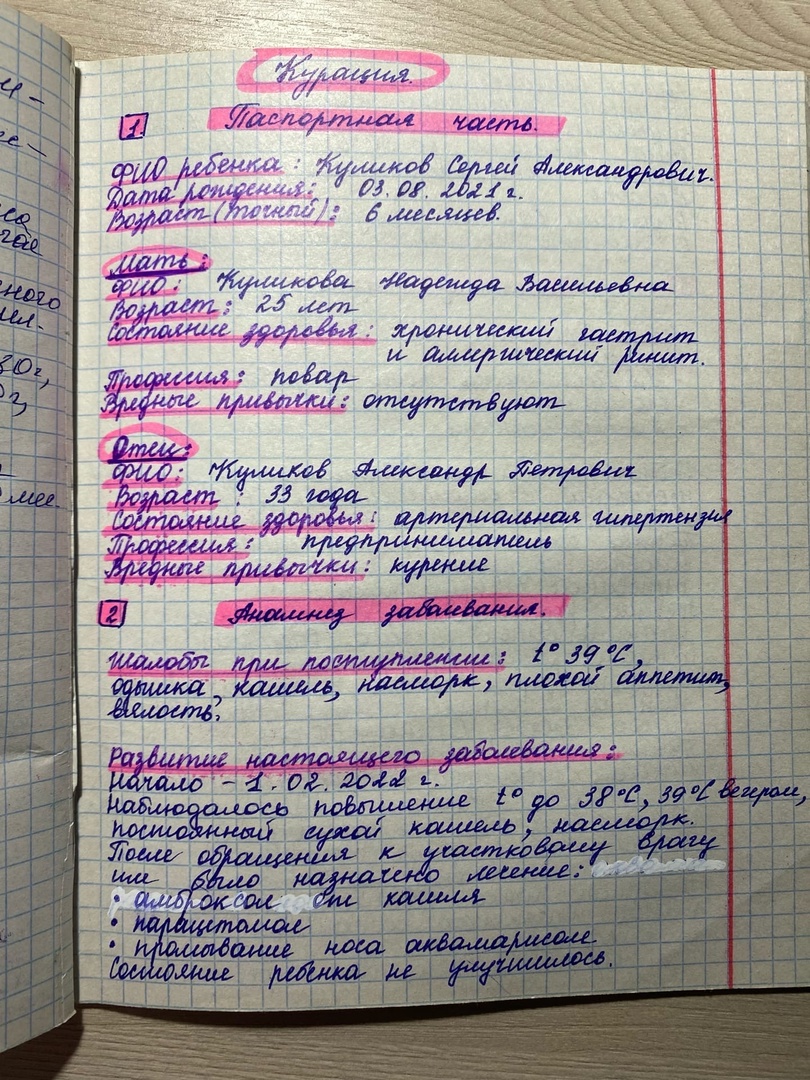 и-
е-
са
гае
ного
ил-
30г,
0г,
мес.
Курация.
1 Паспортная часть.
ФИО ребенка: Куликов Сергей Александрович.
Дата рождения: 03.08.2021 г.
Возраст (точный): 6 месяцев.
Мать:
ФИО: Куликова Надежда Васильевна
Возраст: 25 лет
Состояние здоровья: хронический гастрит
и аллергический ринит.
Профессия: повар
Вредные привычки: отсутствуют
Отец:
ФИО: Куликов Александр Петрович
Возраст: 33 года
Состояние здоровья: артериальная гипертензия
Профессия: предприниматель
Вредные привычки: курение
2 Анамнез заболевания.
Жалобы при поступлении: t° 39°C,
одышка, кашель, насморк, плохой аппетит,
вялость.
Развитие настоящего заболевания:
Начало - 1.02.2022 г.
Наблюдалось повышение t° до 38°C, 39°C вечером,
постоянный сухой кашель, насморк.
После обращения к участковому врачу
им было назначено лечение:
• амброксол от кашля
• парацтомол
• промывание носа аквамарисом
Состояние ребенка не улучшилось.